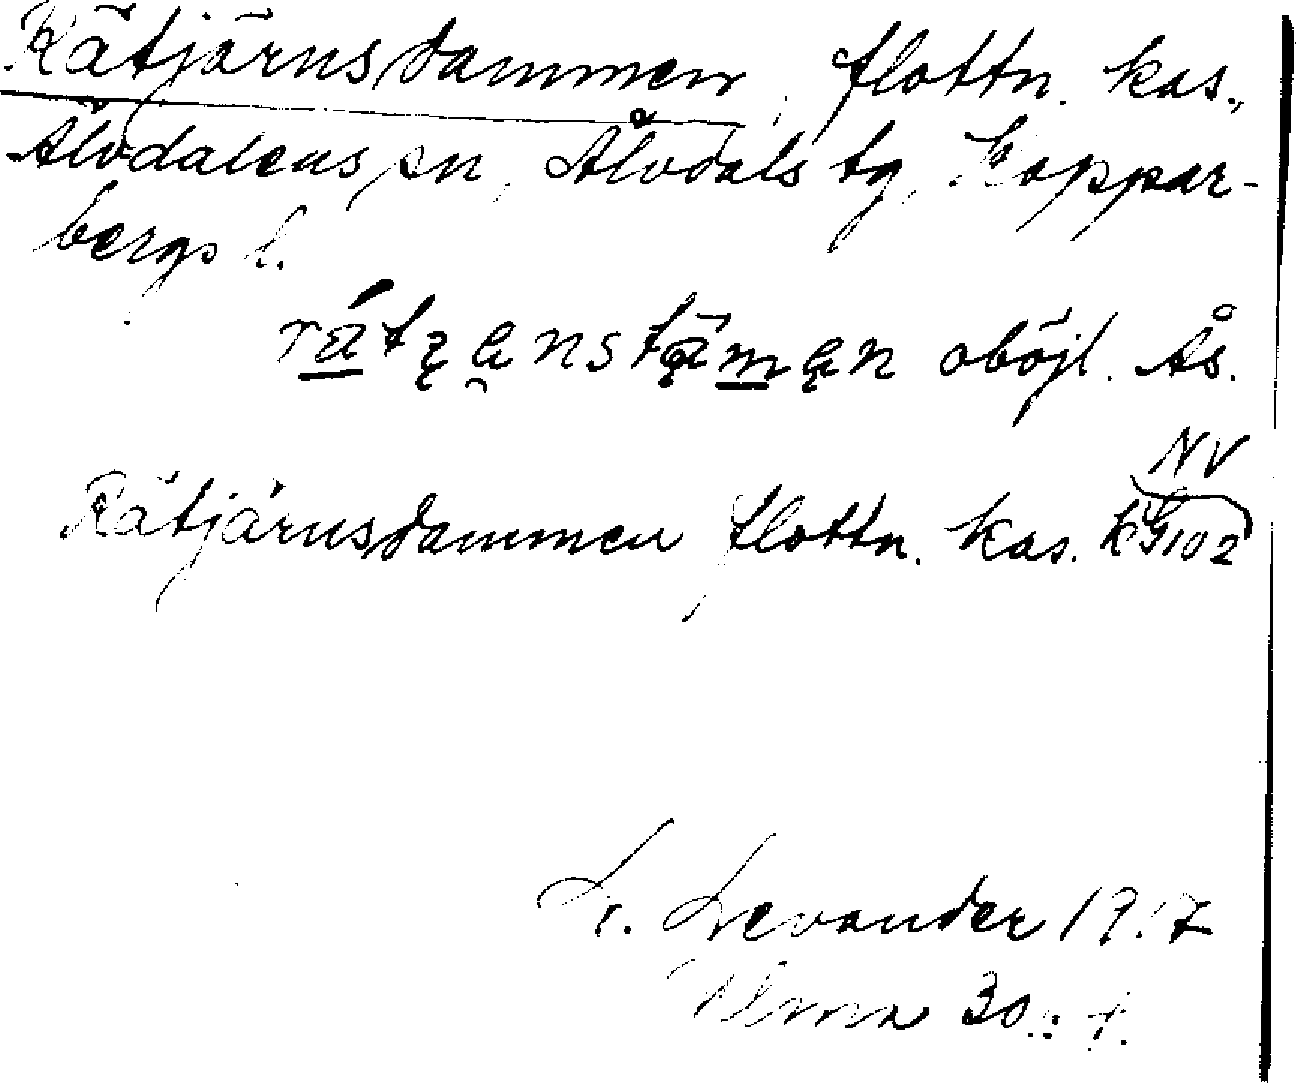 Rätjärnsdammen, flottn. kas.,
Älvdalens sn, Älvdals tg, Koppar-
bergs l.
rátʒənstämən oböjl. Ås.
NV
Rätjärnsdammen flottn. kas. kG102
L. Levander 1917